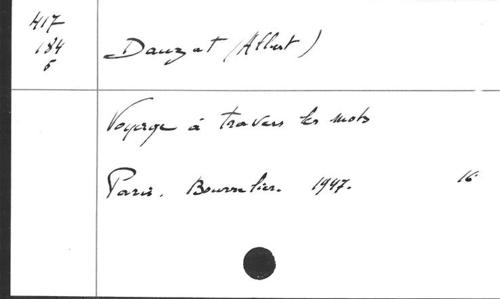 417
184
5
Dauzat (Albert)
Voyage à travers les mots
Paris. Bourrelier. 1947. 16